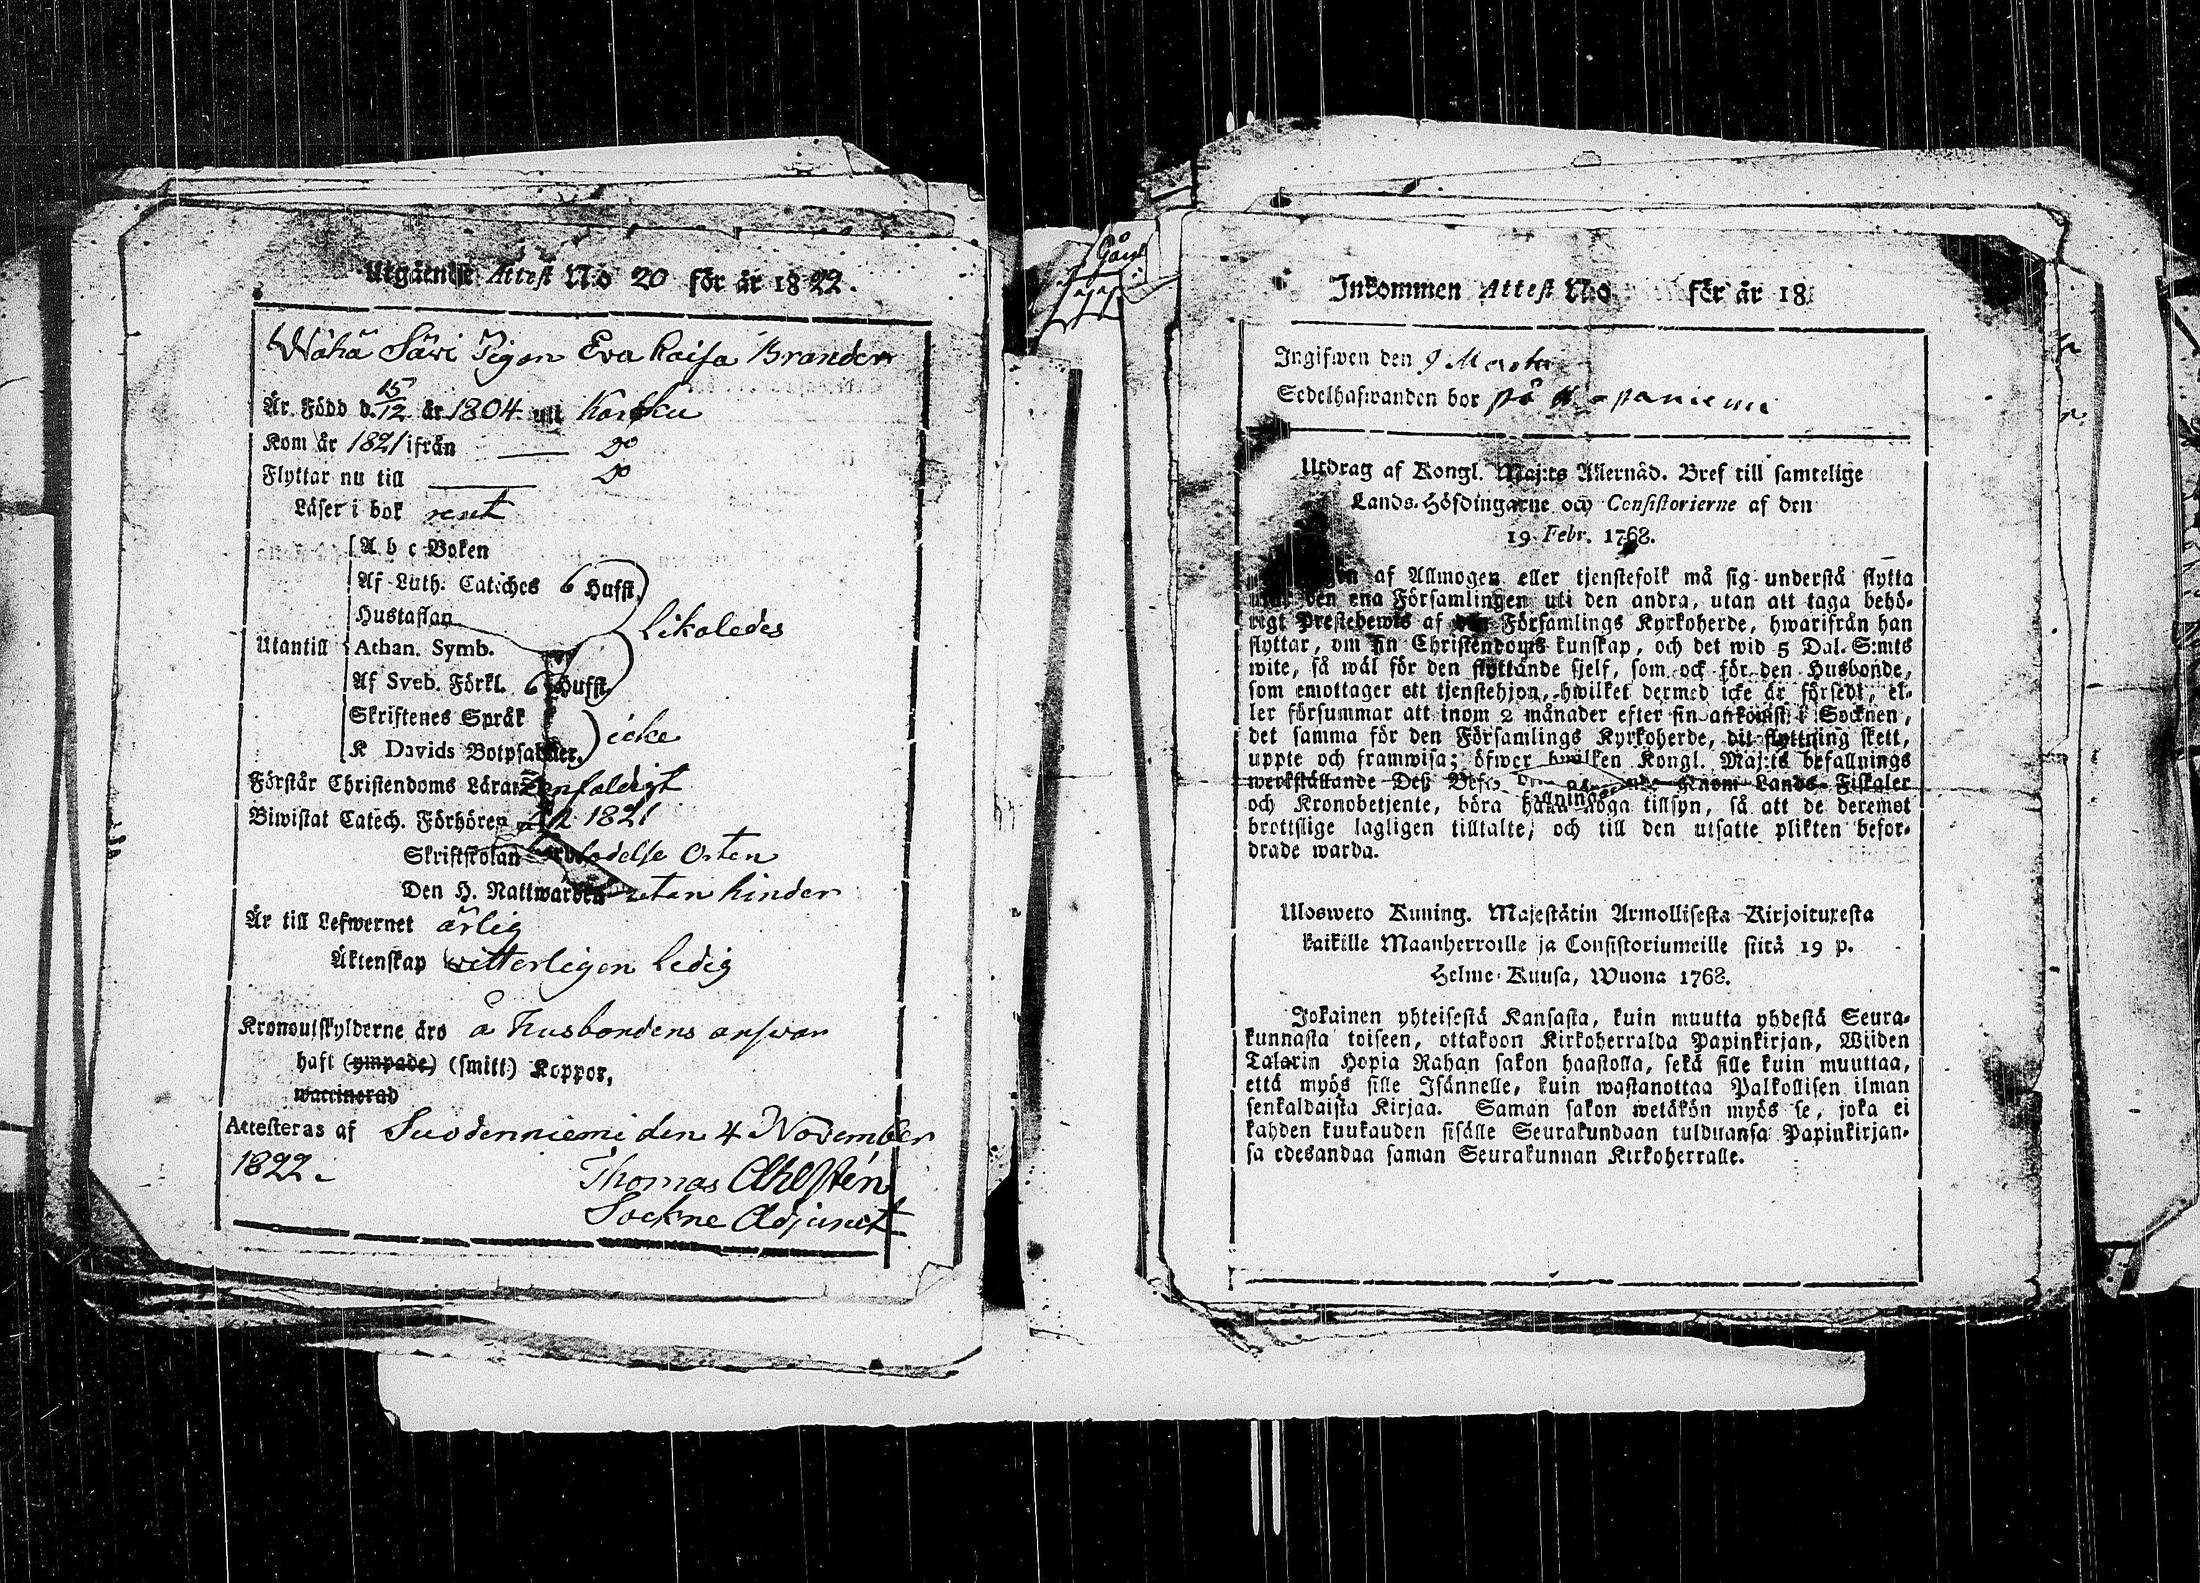 Utgående Attest N:o 20 för år 1822.
Wähä Säwi Pigan Eva Kaisa Brander
Är Född d. 15/12 år 1804 uti Karkku
Kom år 1821 ifrån —— Do
Flyttar nu till —— Do
Läser i bok rent
Utantill
A b c Boken
Af Luth. Catèches 6 Hufst.
Hustaflan
likaledes
Athan. Symb.
Af Sveb. Förkl. 6 Hufst.
Skriftenes Språk
icke
K Davids Botpsalmer.
Förstår Christendoms Läran Enfaldigt
Biwistat Catech. Förhören 1821
Skriftskolan Orten
Den H. Nattwarden utan hinder
Är till Lefwernet ärlig
Äktenskap witterligen ledig
Kronoutskylderne äro å Husbondens answar
haft (ympade) (smitt) Koppor,
waccinerad
Attesteras af Suodenniemi den 4 November
1822.
Thomas Ahlstén
Sockne Adjunct
Inkommen Attest N:o för år 18
Ingifwen den 9 Martii
Sedelhafwanden bor på
Utdrag af Kongl. Maj:ts Allernåd. Bref till samtelige
Lands-Höfdingarne och Consistorierne af den
19 Febr. 1768.
af Allmogen eller tjenstefolk må sig understå flytta
den ena Församlingen uti den andra, utan att taga behö-
rigt Prestebewis af Församlings Kyrkoherde, hwarifrån han
flyttar, om sin Christendoms kunskap, och det wid 5 Dal. S:mts
wite, så wäl för den flyttande sjelf, som ock för den Husbonde,
som emottager ett tjenstehjon, hwilket dermed icke är försedt, el-
ler försummar att inom 2 månader efter sin ankomst i Socknen,
det samma för den Församlings Kyrkoherde, dit flyttning skett,
uppte och framwisa; öfwer hwilken Kongl. Maj:ts befallnings
werkställande Deß Lands-Fiskaler
och Kronobetjente, böra hafwa noga tillsyn, så att de deremot
brottslige lagligen tilltalte, och till den utsatte plikten befor-
drade warda.
Ulosweto Kuning. Majestätin Armollisesta Kirjoituxesta
kaikille Maanherroille ja Consistoriumeille siitä 19 p.
Helme-Kuusa, Wuona 1768.
Jokainen yhteisestä Kansasta, kuin muutta yhdestä Seura-
kunnasta toiseen, ottakoon Kirkoherralda Papinkirjan, Wiiden
Talarin Hopia Rahan sakon haastolla, sekä sille kuin muuttaa,
että myös sille Isännelle, kuin wastanottaa Palkollisen ilman
senkaldaista Kirjaa. Saman sakon wetäkön myös se, joka ei
kahden kuukauden sisälle Seurakundaan tulduansa Papinkirjan-
sa edesandaa saman Seurakunnan Kirkoherralle.